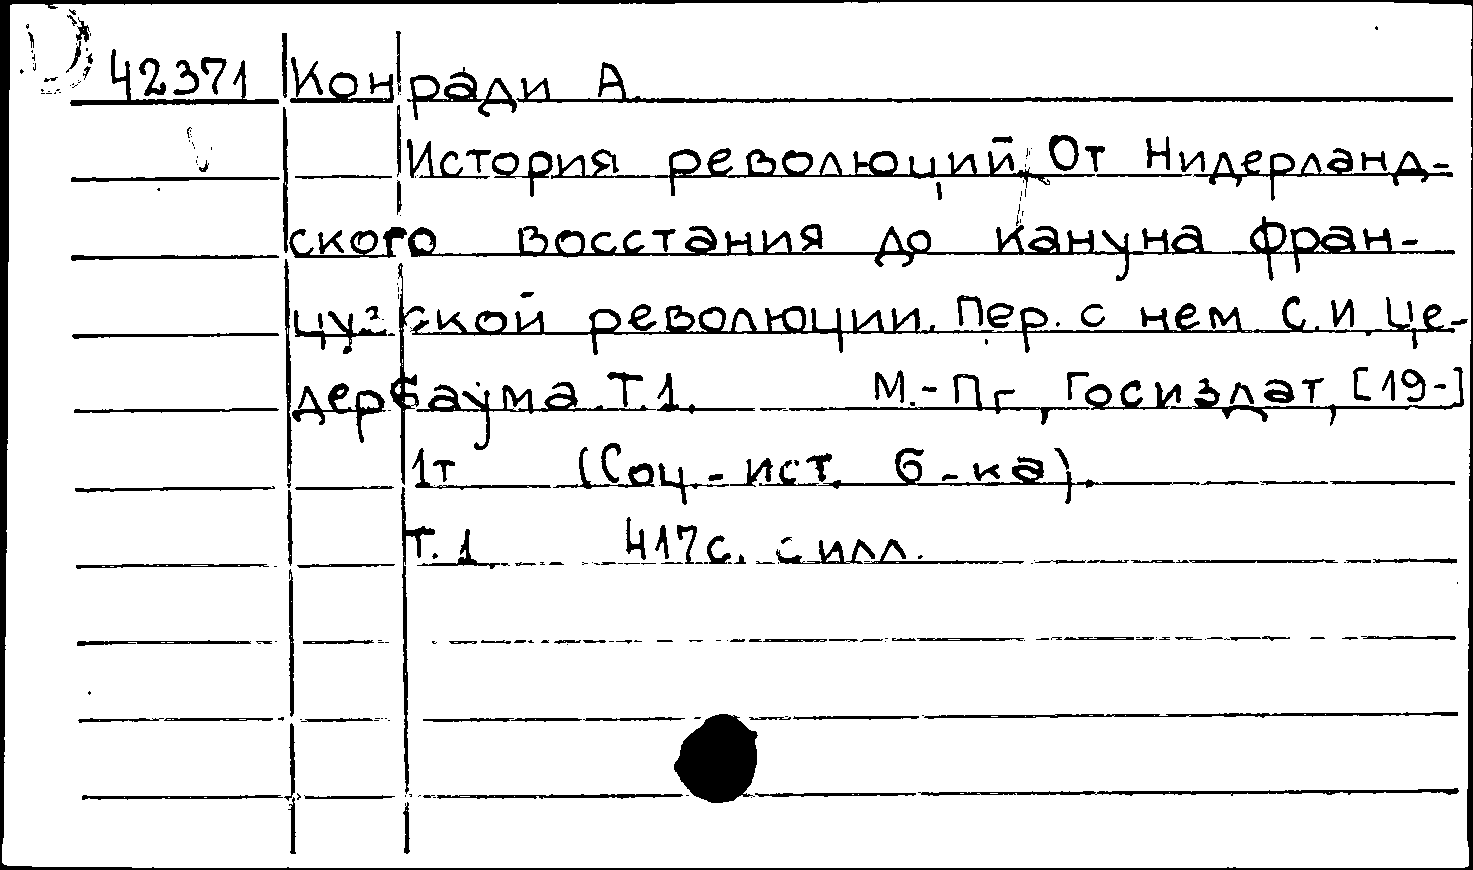 42371 Конради А.
История революций. От Нидерланд-
ского восстания до кануна фран-
цузской революции. Пер. с нем С.И. Це-
дербаума. Т.1. М.-Пг, Госиздат, [19-]
1т (Соц.-ист. б-ка).
Т. 1 417с. с илл.